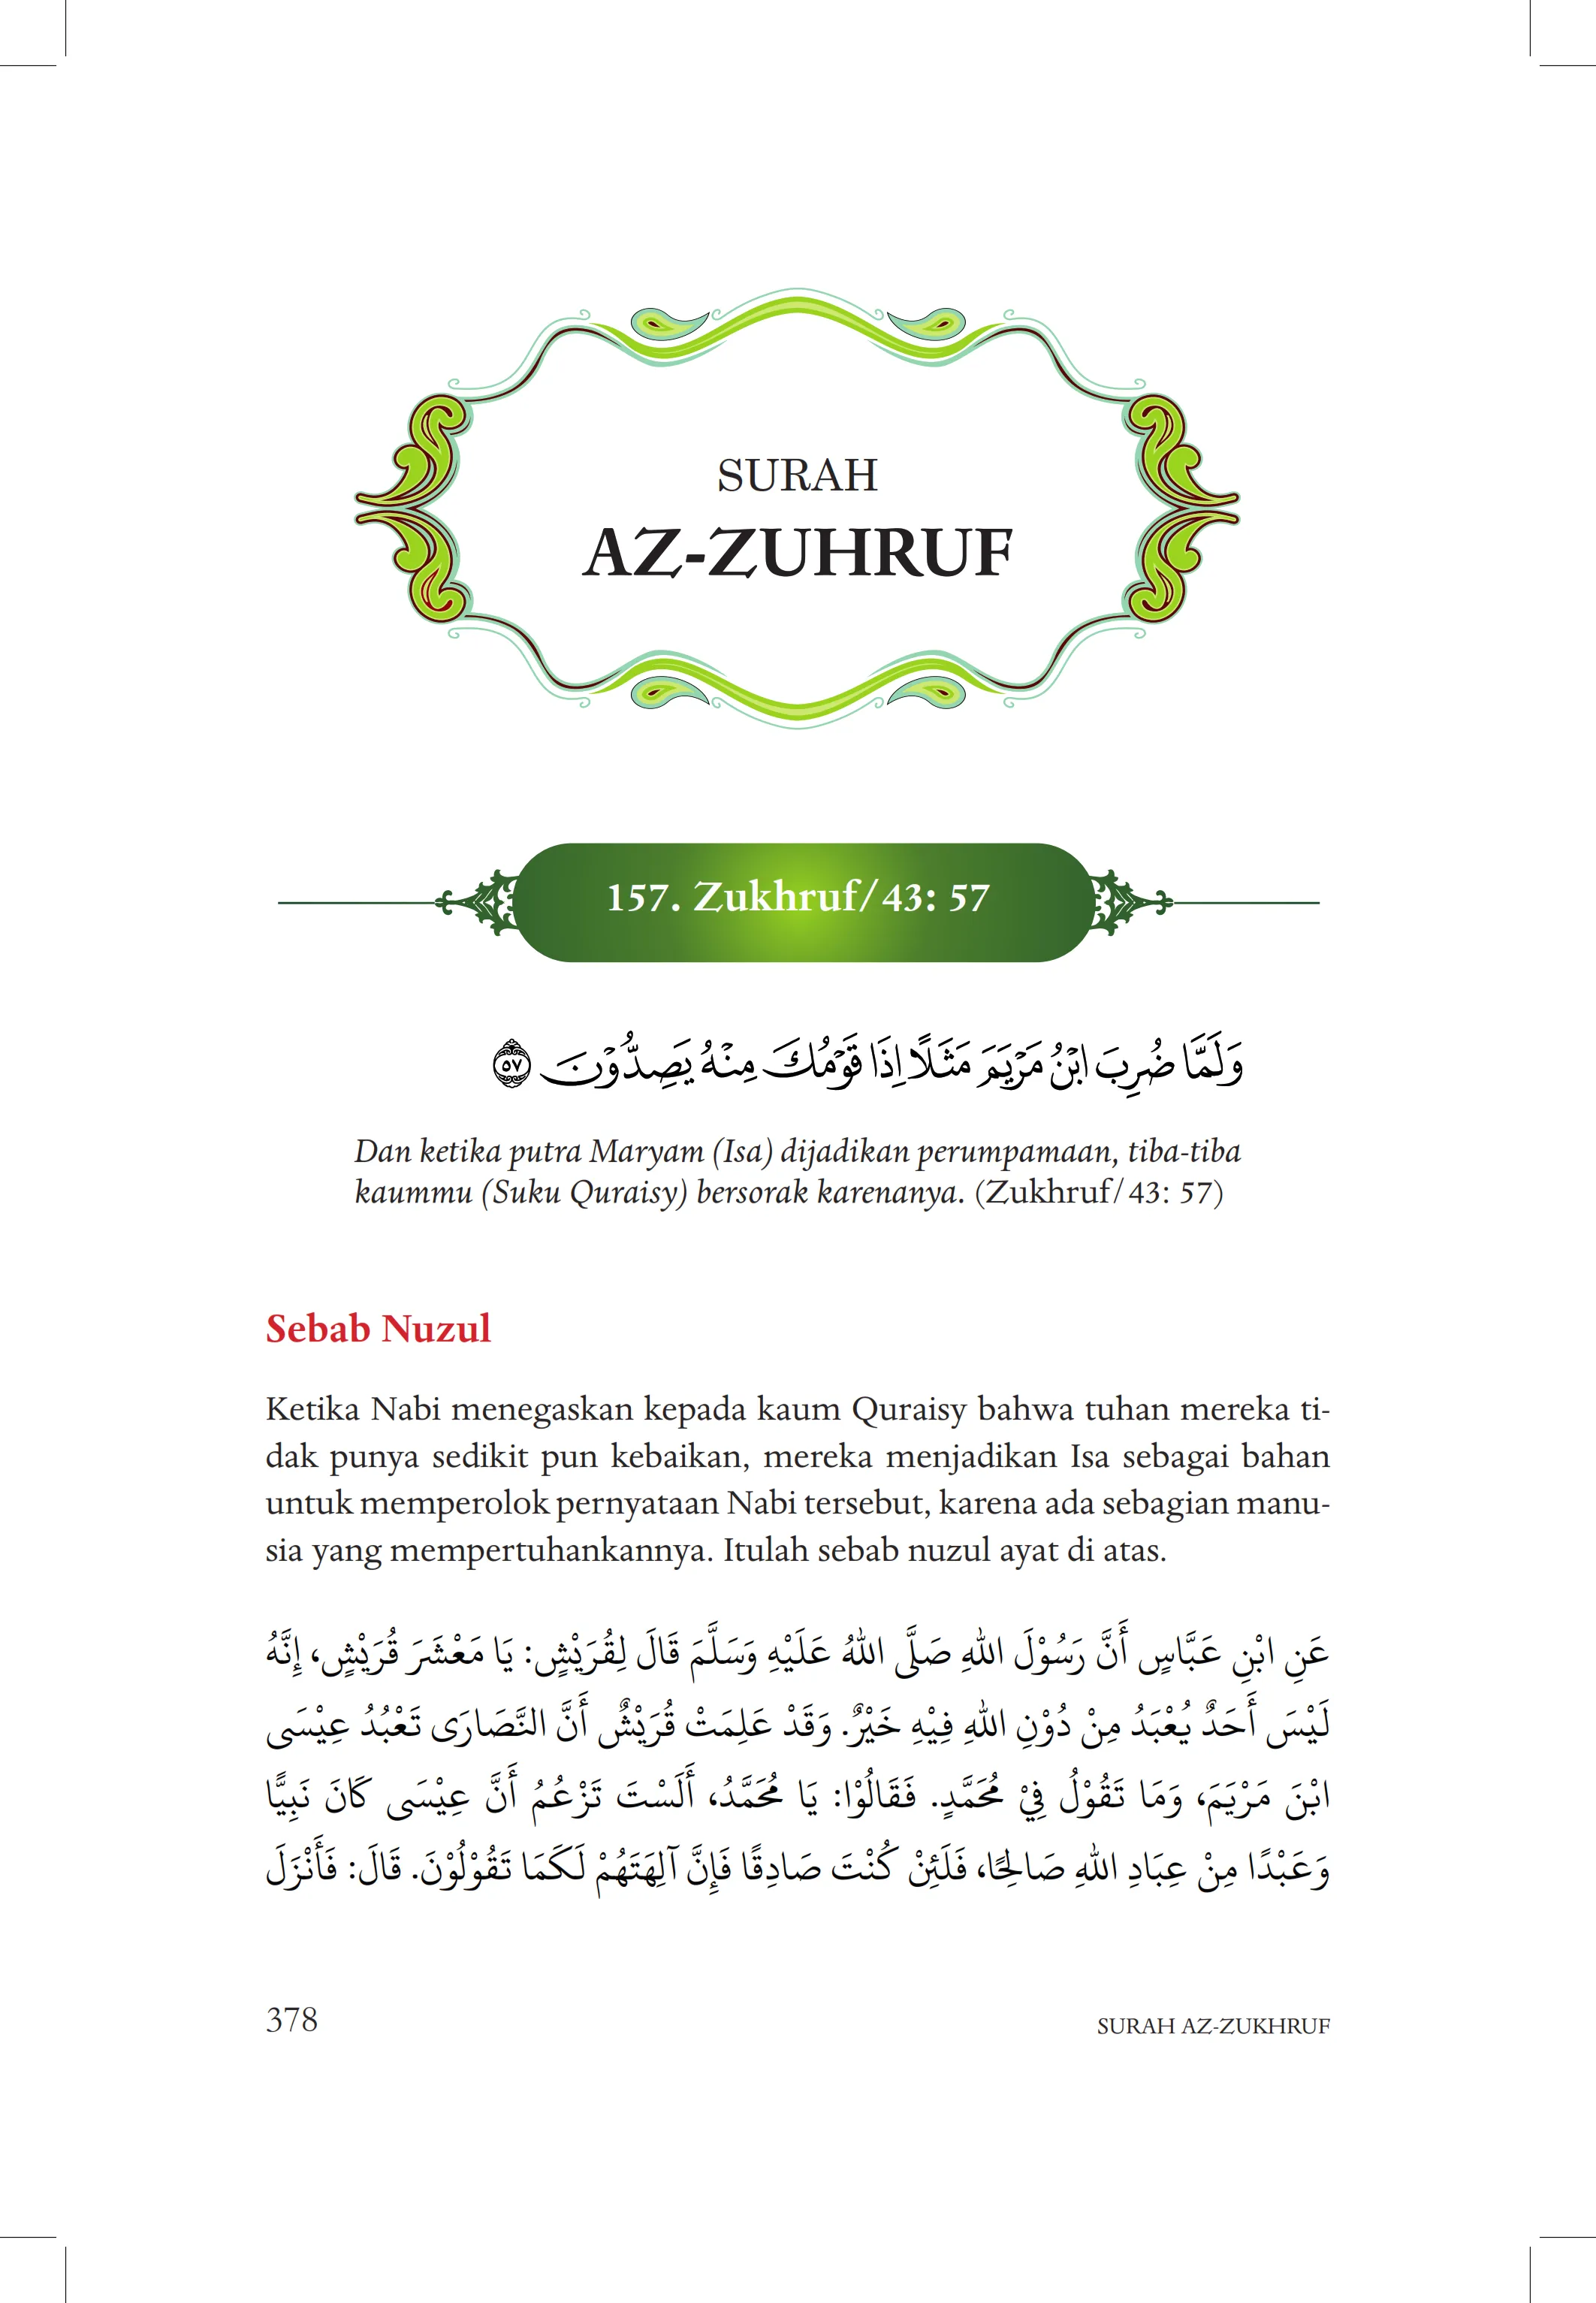 SURAH
AZ-ZUHRUF
157. Zukhruf/43: 57
وَلَمَّا ضُرِبَ ابْنُ مَرْيَمَ مَثَلًا اِذَا قَوْمُكَ مِنْهُ يَصِدُّوْنَ ٥٧
Dan ketika putra Maryam (Isa) dijadikan perumpamaan, tiba-tiba
kaummu (Suku Quraisy) bersorak karenanya. (Zukhruf/43: 57)
Sebab Nuzul
Ketika Nabi menegaskan kepada kaum Quraisy bahwa tuhan mereka ti-
dak punya sedikit pun kebaikan, mereka menjadikan Isa sebagai bahan
untuk memperolok pernyataan Nabi tersebut, karena ada sebagian manu-
sia yang mempertuhankannya. Itulah sebab nuzul ayat di atas.
عَنِ ابْنِ عَبَّاسٍ أَنَّ رَسُوْلَ اللهِ صَلَّى اللهُ عَلَيْهِ وَسَلَّمَ قَالَ لِقُرَيْشٍ: يَا مَعْشَرَ قُرَيْشٍ، إِنَّهُ
لَيْسَ أَحَدٌ يُعْبَدُ مِنْ دُوْنِ اللهِ فِيْهِ خَيْرٌ. وَقَدْ عَلِمَتْ قُرَيْشٌ أَنَّ النَّصَارَى تَعْبُدُ عِيْسَى
ابْنَ مَرْيَمَ، وَمَا تَقُوْلُ فِيْ مُحَمَّدٍ. فَقَالُوْا: يَا مُحَمَّدُ، أَلَسْتَ تَزْعُمُ أَنَّ عِيْسَى كَانَ نَبِيًّا
وَعَبْدًا مِنْ عِبَادِ اللهِ صَالِحًا، فَلَئِنْ كُنْتَ صَادِقًا فَإِنَّ آلِهَتَهُمْ لَكَمَا تَقُوْلُوْنَ. قَالَ: فَأَنْزَلَ
378
SURAH AZ-ZUKHRUF